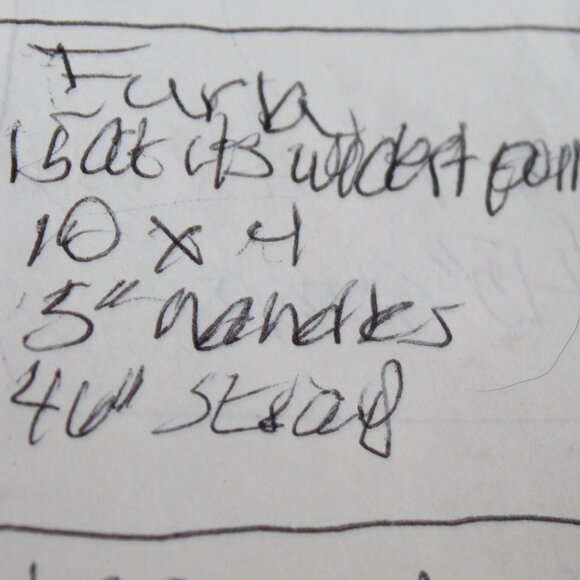 Furla
15 at its widest poin
10 x 4
5" handles
46" strap